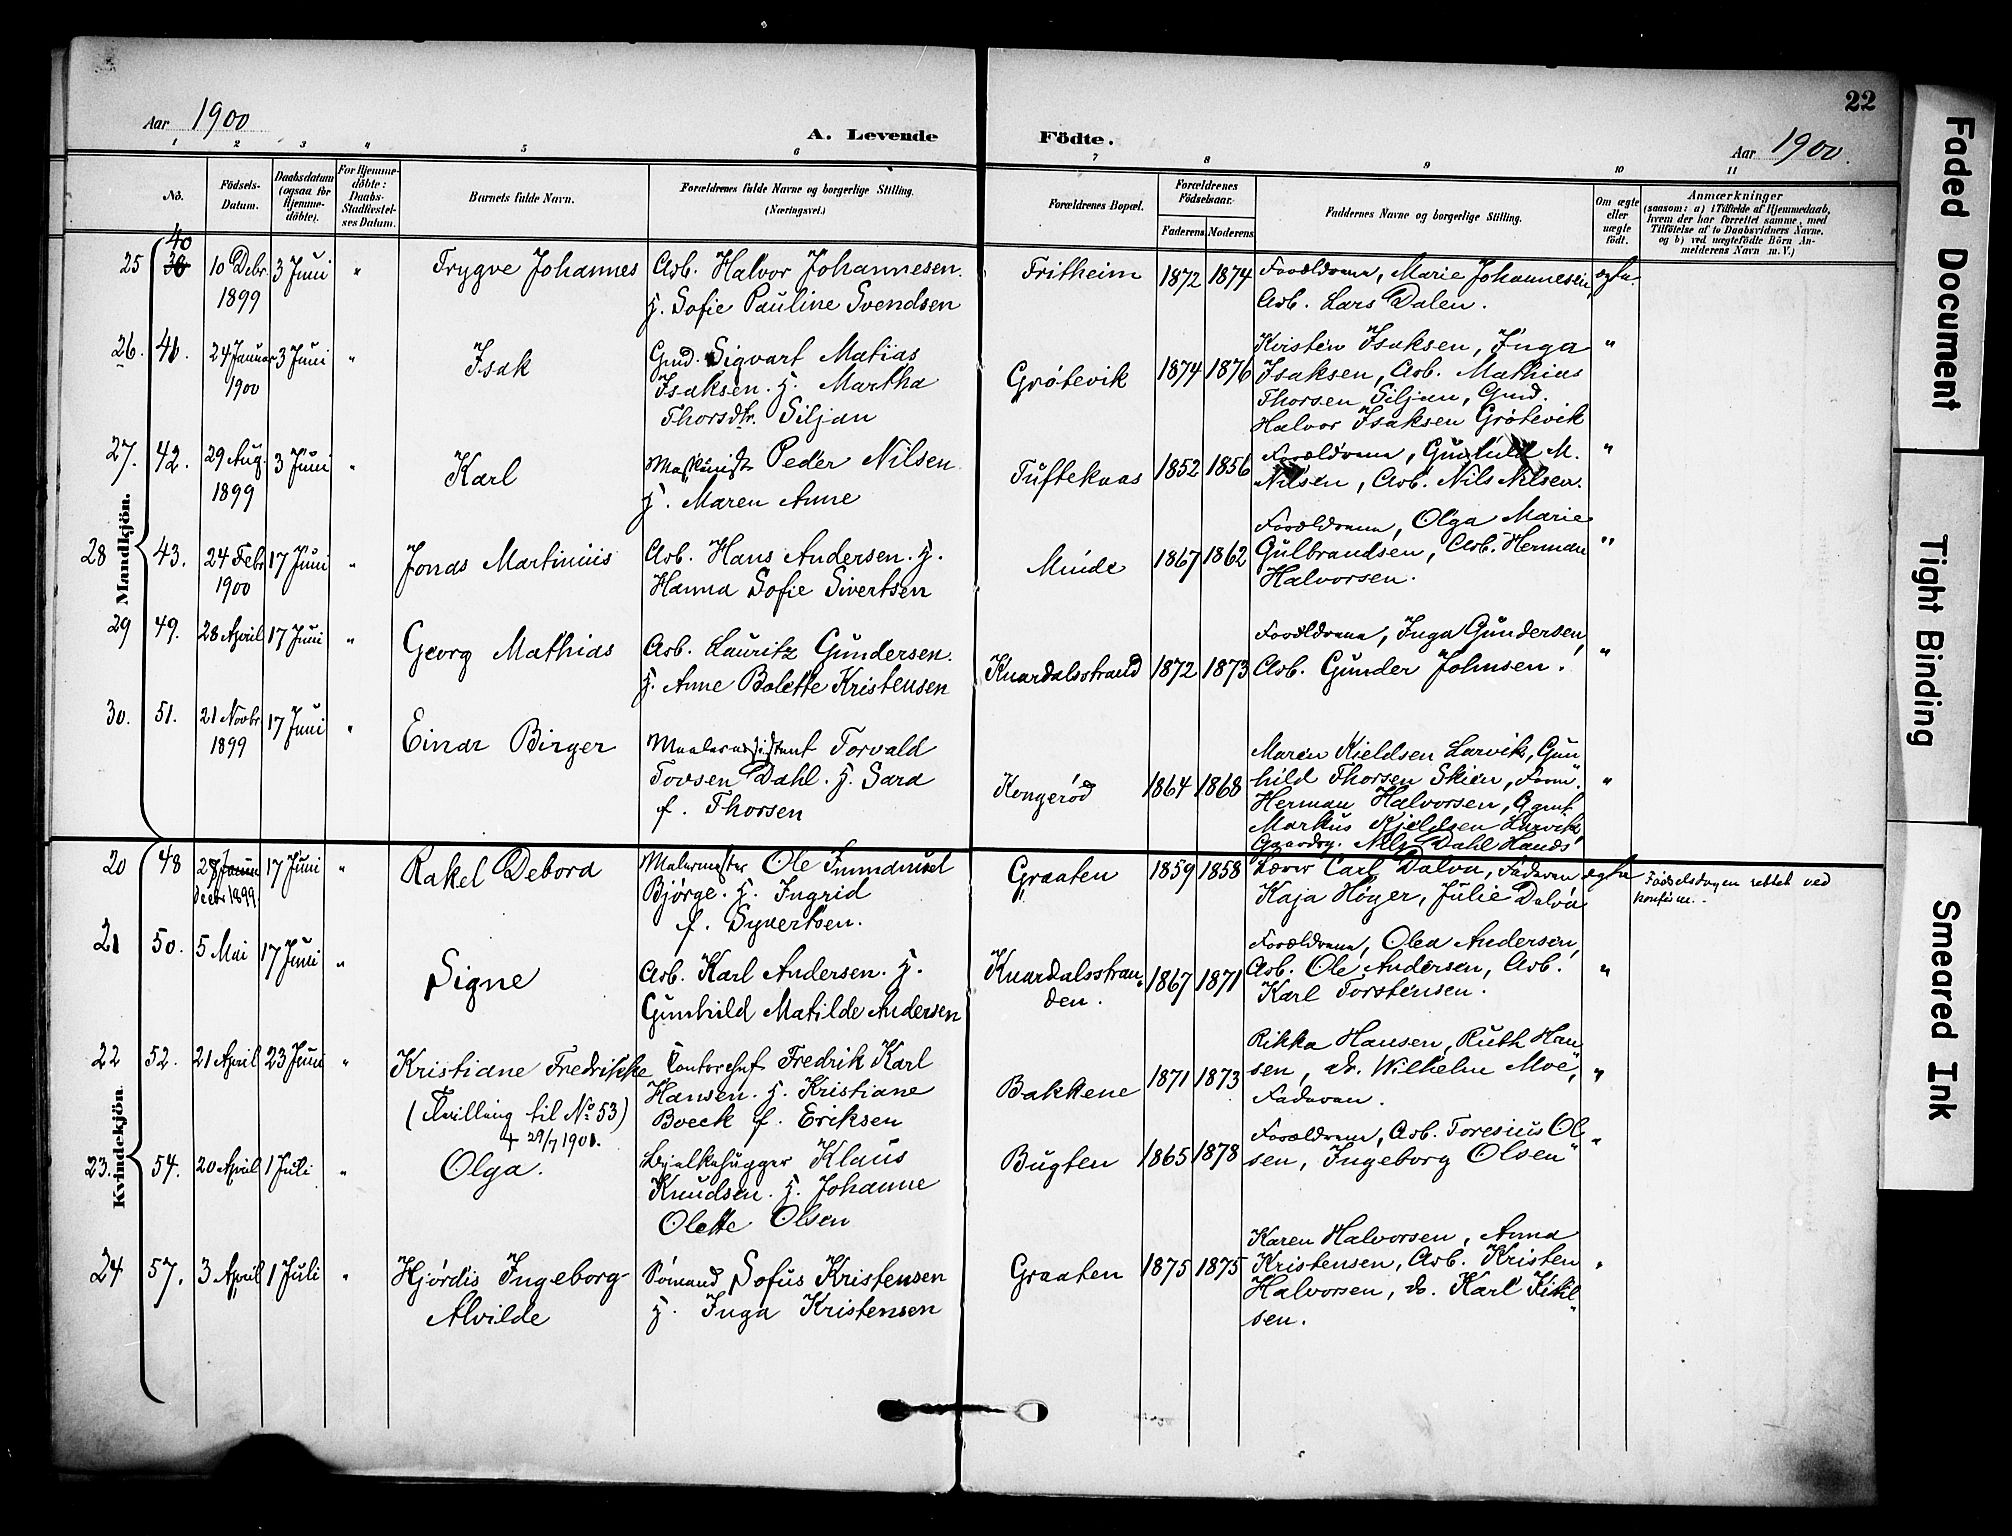 22
Aar 1900
A. Levende Födte.
Aar 1900.
1 2 3 4 5 6 7 8 9 10 11
No.
Födsels-Datum.
Daabsdatum (ogsaa for Hjemme-döbte).
For Hjemme-döbte: Daabs-Stadfæstel-ses Datum.
Barnets fulde Navn.
Forældrenes fulde Navne og borgerlige Stilling.
(Næringsvei.)
Forældrenes Bopæl.
Forældrenes Födselsaar.
Faderens Moderens
Faddernes Navne og borgerlige Stilling.
Om ægte eller uægte födt.
Anmærkninger
(saasom: a) i Tilfælde af Hjemmedaab,
hvem der har forrettet samme, med
Tilföielse af to Daabsvidners Navne,
og b) ved uægtefödte Börn An-
melderens Navn m. V.)
Mandkjön.
25 40 10 Debr. 1899 3 Juni " Trygve Johannes
Arb. Halvor Johannesen.
H. Sofie Pauline Svendsen
Fritheim 1872 1874
Forældrene, Marie Johannesen,
Arb. Lars Dalen.
ægte.
26. 41. 24 Januar 1900 3 Juni " Isak
Gmd. Sigvart Matias
Isaksen. H. Martha
Thorsdtr. Siljan
Grótevik 1874 1876
Kirsten Isaksen, Inga
Isaksen, Arb. Mathias
Thorsen Siljan, Gmd.
Halvor Isaksen Grótevik
"
27. 42. 29 Aug. 1899 3 Juni " Karl
Maskinist Peder Nilsen
H. Maren Anne
Tufteknas 1852 1856
Forældrene, Gunhild M.
Nilsen, Arb. Nils Nilsen.
"
28 43. 24 Febr 1900 17 Juni " Jonas Martinius
Arb. Hans Andersen. H.
Hanna Sofie Sivertsen
Minde 1867 1862
Forældrene, Olga Marie
Gulbrandsen, Arb. Herman
Halvorsen.
"
29 49. 28 April 17 Juni " Georg Mathias
Arb. Lauritz Gundersen.
H. Anne Bolette Kristensen
Knardalsstrand 1872 1873
Forældrene, Inga Gundersen,
Arb. Gunder Johnsen.
"
30. 51. 21 Novbr 1899 17 Juni " Einar Birger
Maalerassistent Torvald
Tovsen Dahl. H. Sara
f. Thorsen
Kongeród 1864 1868
Maren Kjeldsen Larvik, Gun
hild Thorsen Skien, Form.
Herman Halvorsen, Agent
Markus Kjeldsen Larvik
Gaardbg. Nils Dahl Hands
"
Kvindekjön.
20 48 28 Januar Decbr 1899 17 Juni " Rakel Debora
Malermester Ole Immanuel
Bjórge. H. Ingrid
f. Syvertsen.
Graaten 1859 1858
Lærer Carl Dalva, Faderen
Kaja Hóyer, Julie Dalva
ægte
Fódselsdagen rettet ved
konfirm.
21 50. 5 Mai 17 Juni " Signe
Arb. Karl Andersen. H.
Gunhild Matilde Andersen
Knardalsstran-
den. 1867 1871
Forældrene, Olea Andersen,
Arb. Ole Andersen, Arb.
Karl Torstensen.
"
22 52. 21 April 23 Juni " Kristiane Fredrikke
(Tvilling til No 53)
+ 29/7 1901.
Contorchef Fredrik Karl
Hansen. H. Kristiane
Boeck f. Eriksen
Bakkene 1871 1873
Rikka Hansen, Ruth Han
sen, dr. Wilhelm Moe,
Faderen.
"
23. 54. 20 April 1 Juli " Olga.
Bjelkehugger Klaus
Knudsen. H. Johanne
Olette Olsen
Bugten 1865 1878
Forældrene, Arb. Toresius Ol
sen, Ingeborg Olsen
"
24 57. 3 April 1 Juli " Hjórdis Ingeborg
Alvilde
Sómand Sofus Kristensen
H. Inga Kristensen
Graaten 1875 1875
Karen Halvorsen, Anna
Kristensen, Arb. Kristen
Halvorsen, do. Karl
sen.
"
Faded Document
Tight Binding
Smeared Ink